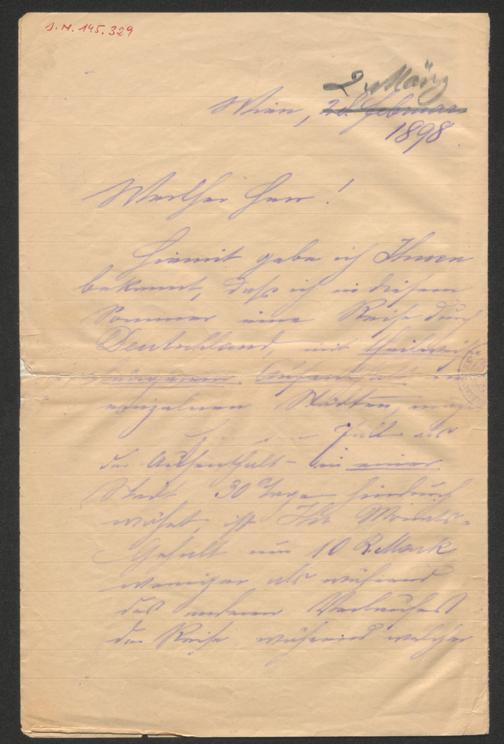 J.N. 145.329
2. März
Wien, 28. Februar
1898.
Werther Herr!
Hiemit gebe ich Ihnen
bekannt, daß ich in diesem
Sommer eine Reise durch
Deutschland, mit theilweise
längerem Aufenthalt in
einzelnen Städten,
Falle als
der Aufenthalt in einer
Stadt 30 Tage hindurch
währt ist Ihr Monats-
Gehalt um 10 R.Mark
weniger als während
des anderen Verlaufes
der Reise während welcher